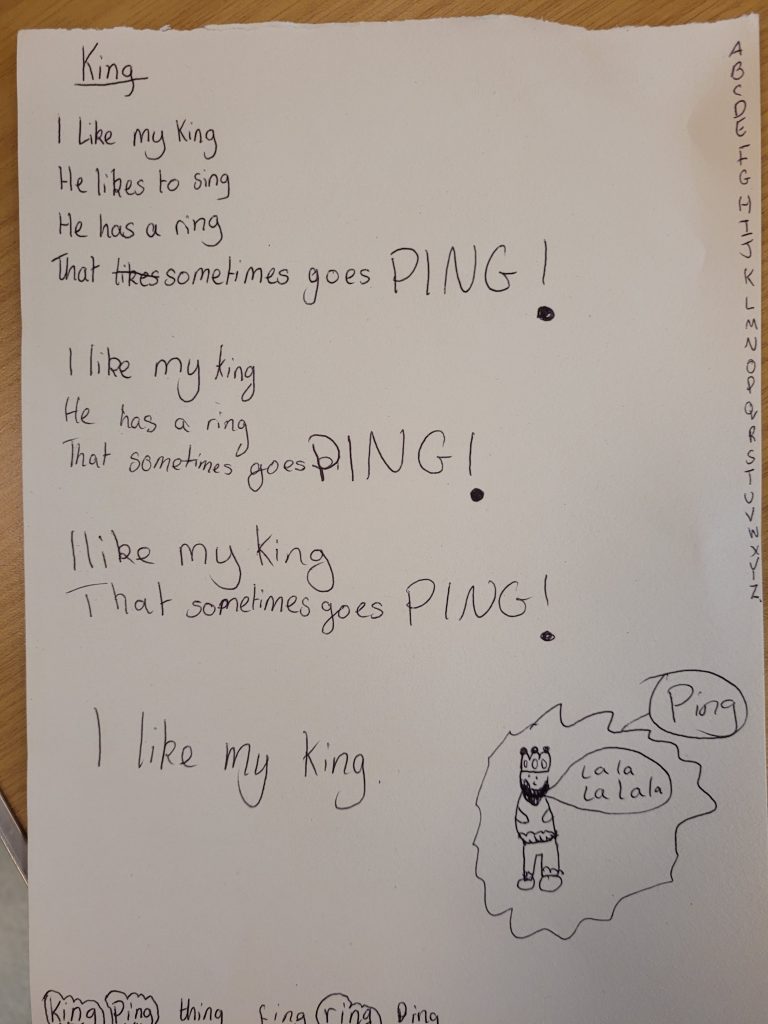 King
I Like my King
He likes to sing
He has a ring
That likes sometimes goes PING!
I like my king
He has a ring
That sometimes goes PING!
I like my king
That sometimes goes PING!
I like my king.
Ping
La la
La la la
King Ping thing ring Ding
A
B
C
D
E
F
G
H
I
J
K
L
M
N
O
P
Q
R
S
T
U
V
W
X
Y
Z